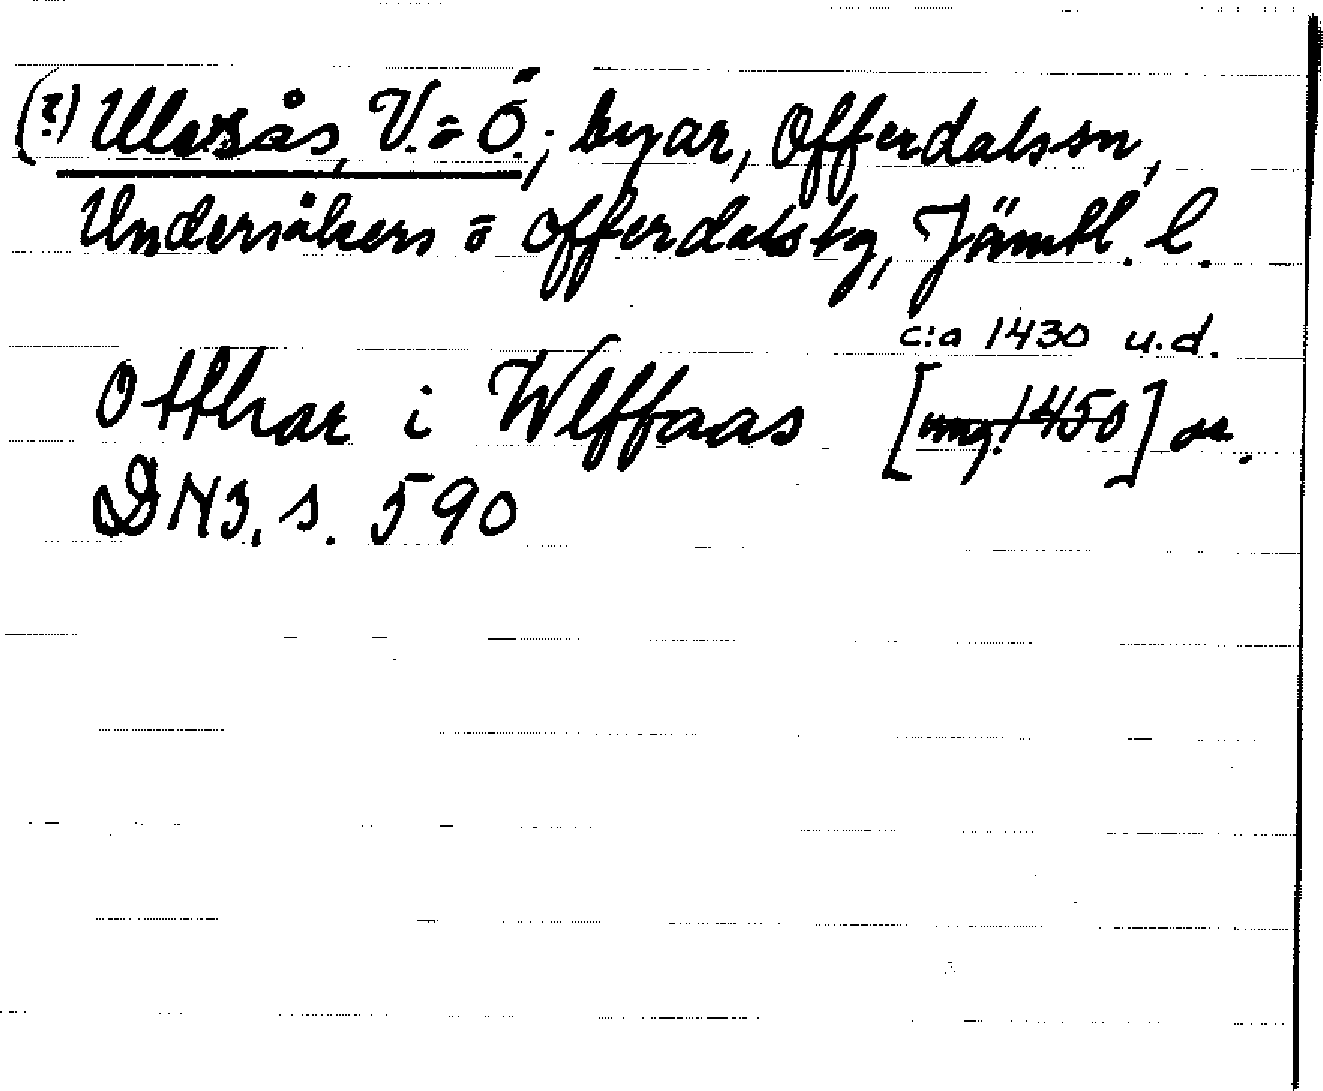 (?) Ulvsås, V. o Ö.; byar, Offerdals sn,
Undersåkers o Offerdals tg, Jämtl. l.
c:a 1430 u.d.
Otthar i Wlffaas [omg. 1450] or.
DN 3, s. 590